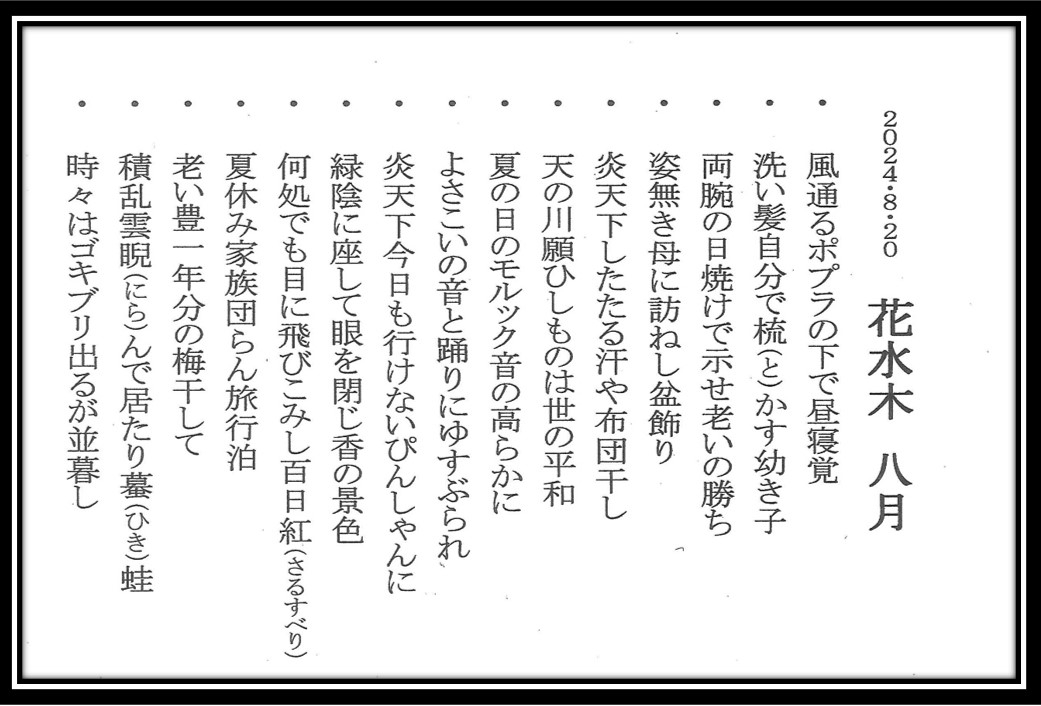 2024・8・20 花水木 八月
・ 風通るポプラの下で昼寝覚
・ 洗い髪自分で梳(と)かす幼き子
・ 両腕の日焼けで示せ老いの勝ち
・ 姿無き母に訪ねし盆飾り
・ 炎天下したたる汗や布団干し
・ 天の川願ひしものは世の平和
・ 夏の日のモルック音の高らかに
・ よさこいの音と踊りにゆすぶられ
・ 炎天下今日も行けないぴんしゃんに
・ 緑陰に座して眼を閉じ香の景色
・ 何処でも目に飛びこみし百日紅(さるすべり)
・ 夏休み家族団らん旅行泊
・ 老い豊一年分の梅干して
・ 積乱雲睨(にら)んで居たり蟇(ひき)蛙
・ 時々はゴキブリ出るが並暮し